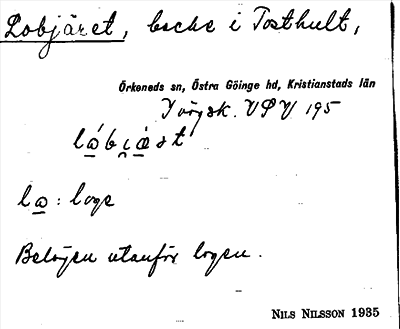 Lobjäret, backe i Tosthult,
Örkeneds sn, Östra Göinge hd, Kristianstads län
195
: loge
Belägen utanför logen.
NILS NILSSON 1935